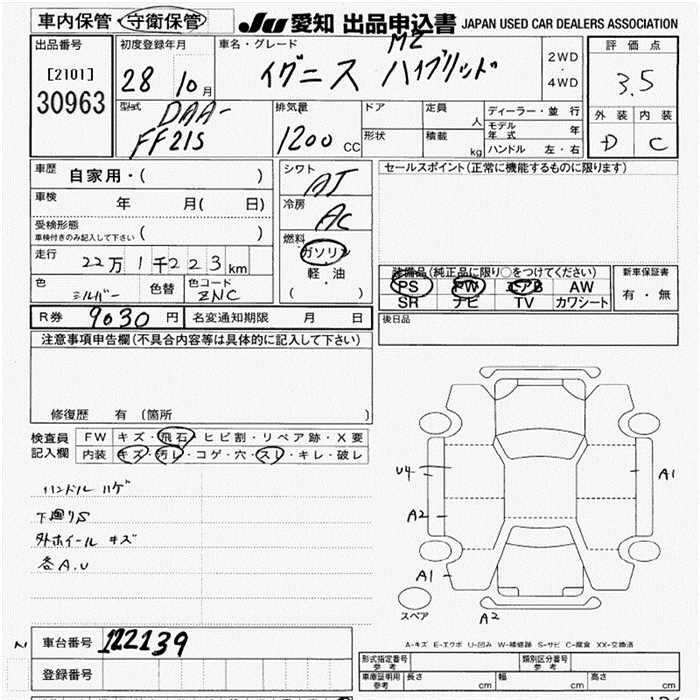 車内保管・守衛保管 JU 愛知 出品申込書 JAPAN USED CAR DEALERS ASSOCIATION
出品番号 初度登録年月 車名・グレード MZ 評価点
[2101] 28 10月 イグニス ハイブリッド 2WD・4WD 3.5
30963 型式 DAA- 排気量 ドア 定員 人 ディーラー・並行 外装 内装
FF21S 1200 CC 形状 積載 kg モデル年式 年 D C
ハンドル 左・右
車歴 自家用・( ) シフト AT セールスポイント(正常に機能するものに限ります)
車検 年 月( 日) 冷房 AC
受検形態 車検付きのみ記入して下さい ( ) 燃料 ガソリン
走行 22万1千223km 軽・油 装備品(純正品に限り○をつけてください) 新車保証書
色 シルバー 色替 色コード ZNC ( ) PS PW エアB AW 有・無
SR ナビ TV カワシート
R券 9030円 名変通知期限 月 日 後日品
注意事項申告欄(不具合内容等は具体的に記入して下さい)
修復歴 有 (箇所 )
検査員 FW キズ・飛石・ヒビ割・リペア跡・X要
記入欄 内装 キズ・汚レ・コゲ・穴・スレ・キレ・破レ
ハンドル ハゲ U4 A1
下廻りS A2
外ホイール キズ
各A.U A1
スペア A2
A-キズ E-エクボ U-凹み W-補修跡 S-サビ C-腐食 XX-交換済
車台番号 122139 形式指定番号 参考 類別区分番号 参考
登録番号 車庫証明用 参考 長さ cm 幅 cm 高さ cm